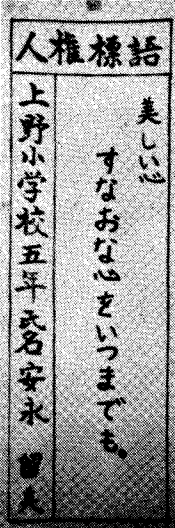 人権標語
美しい心
すなおな心をいつまでも。
上野小学校五年氏名安永